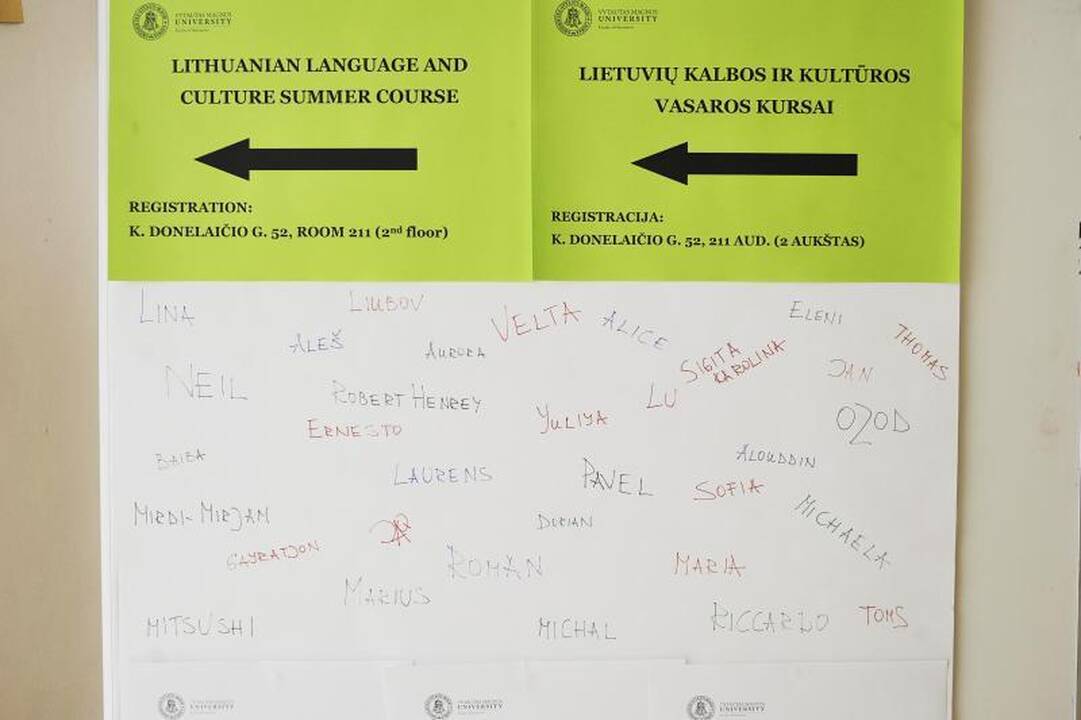 VYTAUTAS MAGNUS
UNIVERSITY
LITHUANIAN LANGUAGE AND
CULTURE SUMMER COURSE
REGISTRATION:
K. DONELAIČIO G. 52, ROOM 211 (2nd floor)
VYTAUTAS MAGNUS
UNIVERSITY
LIETUVIŲ KALBOS IR KULTŪROS
VASAROS KURSAI
REGISTRACIJA:
K. DONELAIČIO G. 52, 211 AUD. (2 AUKŠTAS)
LINA
LIUBOV
VELTA
ALICE
ELENI
THOMAS
ALEŠ
AURORA
SIGITA
KAROLINA
JAN
NEIL
ROBERT HENREY
LU
ERNESTO
YULIYA
OZOD
BAIBA
LAURENS
PAVEL
SOFIA
ALOUDDIN
MIRDI-MIRJAN
DORIAN
MICHAELA
GAYRATJON
ROMAN
MARIA
MARIUS
MITSUSHI
MICHAL
RICCARDO
TOMS
VYTAUTAS MAGNUS
UNIVERSITY
VYTAUTAS MAGNUS
UNIVERSITY
VYTAUTAS MAGNUS
UNIVERSITY